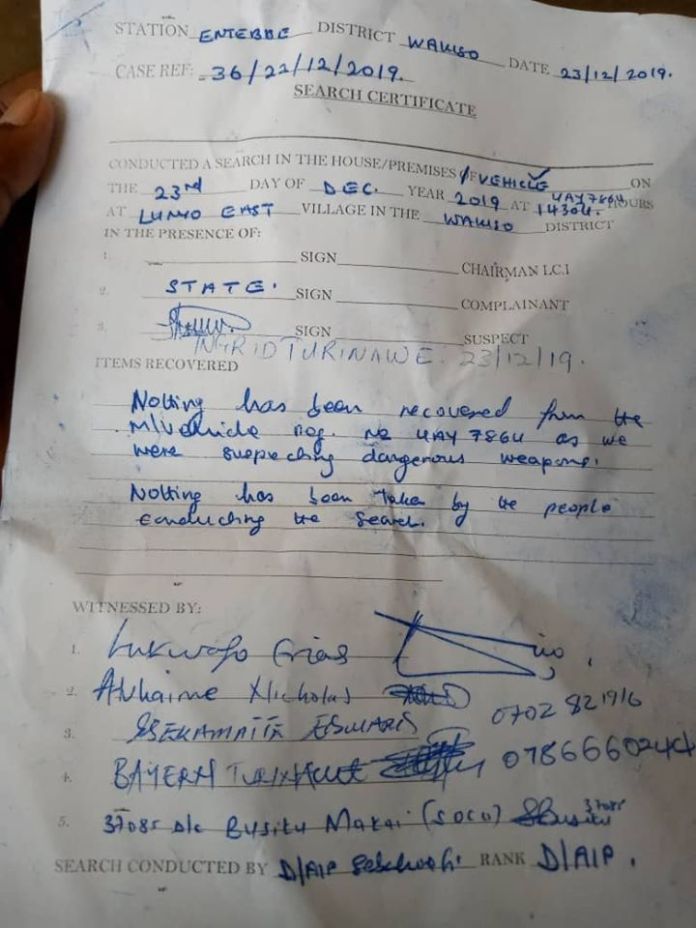 STATION ENTEBBE DISTRICT WAKISO DATE 23/12/2019.
CASE REF: 36/22/12/2019.
SEARCH CERTIFICATE
CONDUCTED A SEARCH IN THE HOUSE/PREMISES OF VEHICLE ON
THE 23rd DAY OF DEC. YEAR 2019 AT UAY 786U 1430H. HOURS
AT LUNYO EAST VILLAGE IN THE WAKISO DISTRICT
IN THE PRESENCE OF:
1. SIGN CHAIRMAN I.C.I
2. STATE. SIGN COMPLAINANT
3. SIGN SUSPECT
INGRID TURINAWE. 23/12/19.
ITEMS RECOVERED
Nothing has been recovered from the
M/Vehicle reg. No UAY 786U as we
were suspecting dangerous weapons.
Nothing has been taken by the people
conducting the search.
WITNESSED BY:
1. Lukwago Erias
2. Nicholas
3. SSEKAMATTE 0702 821916
4. BAYERN 0786660244
5. 37085 D/C Busitu (SOCO) 37085
SEARCH CONDUCTED BY D/AIP RANK D/AIP.